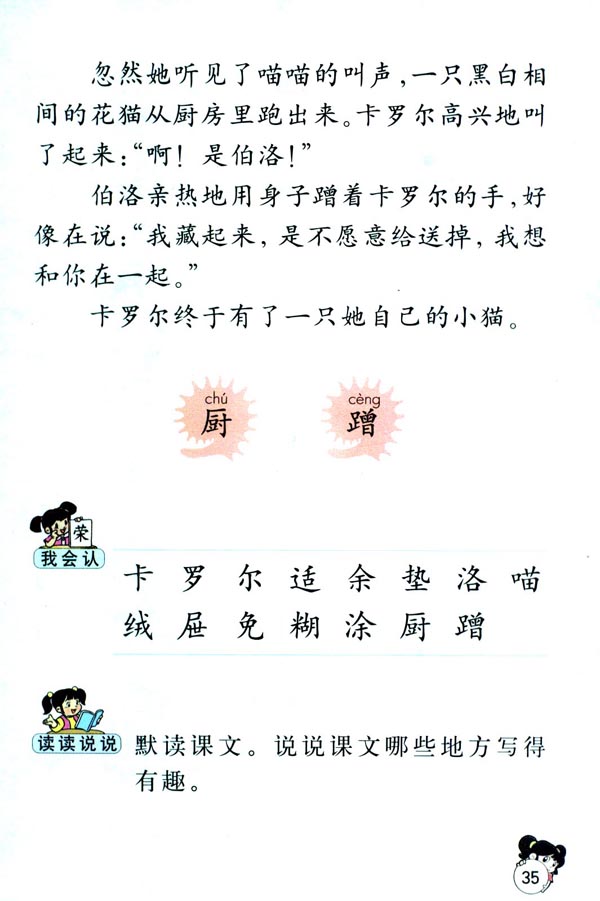 忽然她听见了喵喵的叫声，一只黑白相
间的花猫从厨房里跑出来。卡罗尔高兴地叫
了起来：“啊！是伯洛！”
伯洛亲热地用身子蹭着卡罗尔的手，好
像在说：“我藏起来，是不愿意给送掉，我想
和你在一起。”
卡罗尔终于有了一只她自己的小猫。
chú cèng
厨 蹭
荣
我会认
卡 罗 尔 适 余 垫 洛 喵
绒 屉 免 糊 涂 厨 蹭
读读说说
默读课文。说说课文哪些地方写得
有趣。
35